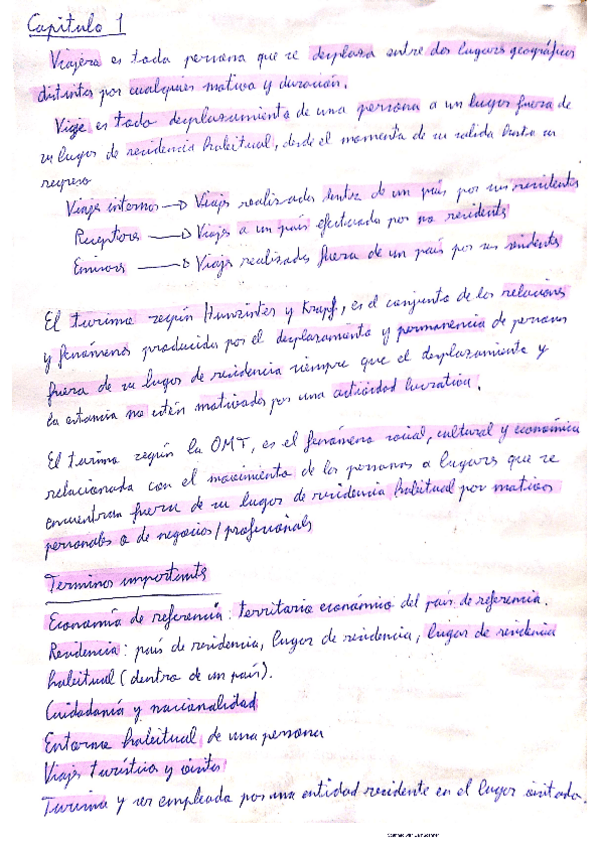 Capitulo 1
Viajero es toda persona que se desplaza entre dos lugares geográficos
distintos por cualquier motivo y duracion.
Viaje es todo desplazamiento de una persona a un lugar fuera de
su lugar de residencia habitual, desde el momento de su salida hasta su
regreso
Viajes internos → Viajes realizados dentro de un país por sus residentes
Receptores → Viajes a un país efectuado por no residents
Emisores → Viajes realizados fuera de un país por sus residentes
El turismo según Hunzinter y Krapf, es el conjunto de las relaciones
y fenómenos producidos por el desplazamiento y permanencia de personas
fuera de su lugar de residencia siempre que el desplazamiento y
la estancia no estén motivados por una actividad lucrativa.
El turismo según la OMT, es el fenómeno social, cultural y económico
relacionado con el movimiento de las personas a lugares que se
encuentran fuera de su lugar de residencia habitual por motivos
personales o de negocios/profesionals
Terminos importants
Economía de referencia: territorio económico del país de referencia.
Residencia: país de residencia, lugar de residencia, lugar de residencia
habitual (dentro de un país).
Cuidadanía y nacionalidad
Entorno habitual de una persona
Viajes turísticos y visitas
Turismo y ser empleado por una entidad residente en el lugar visitado.